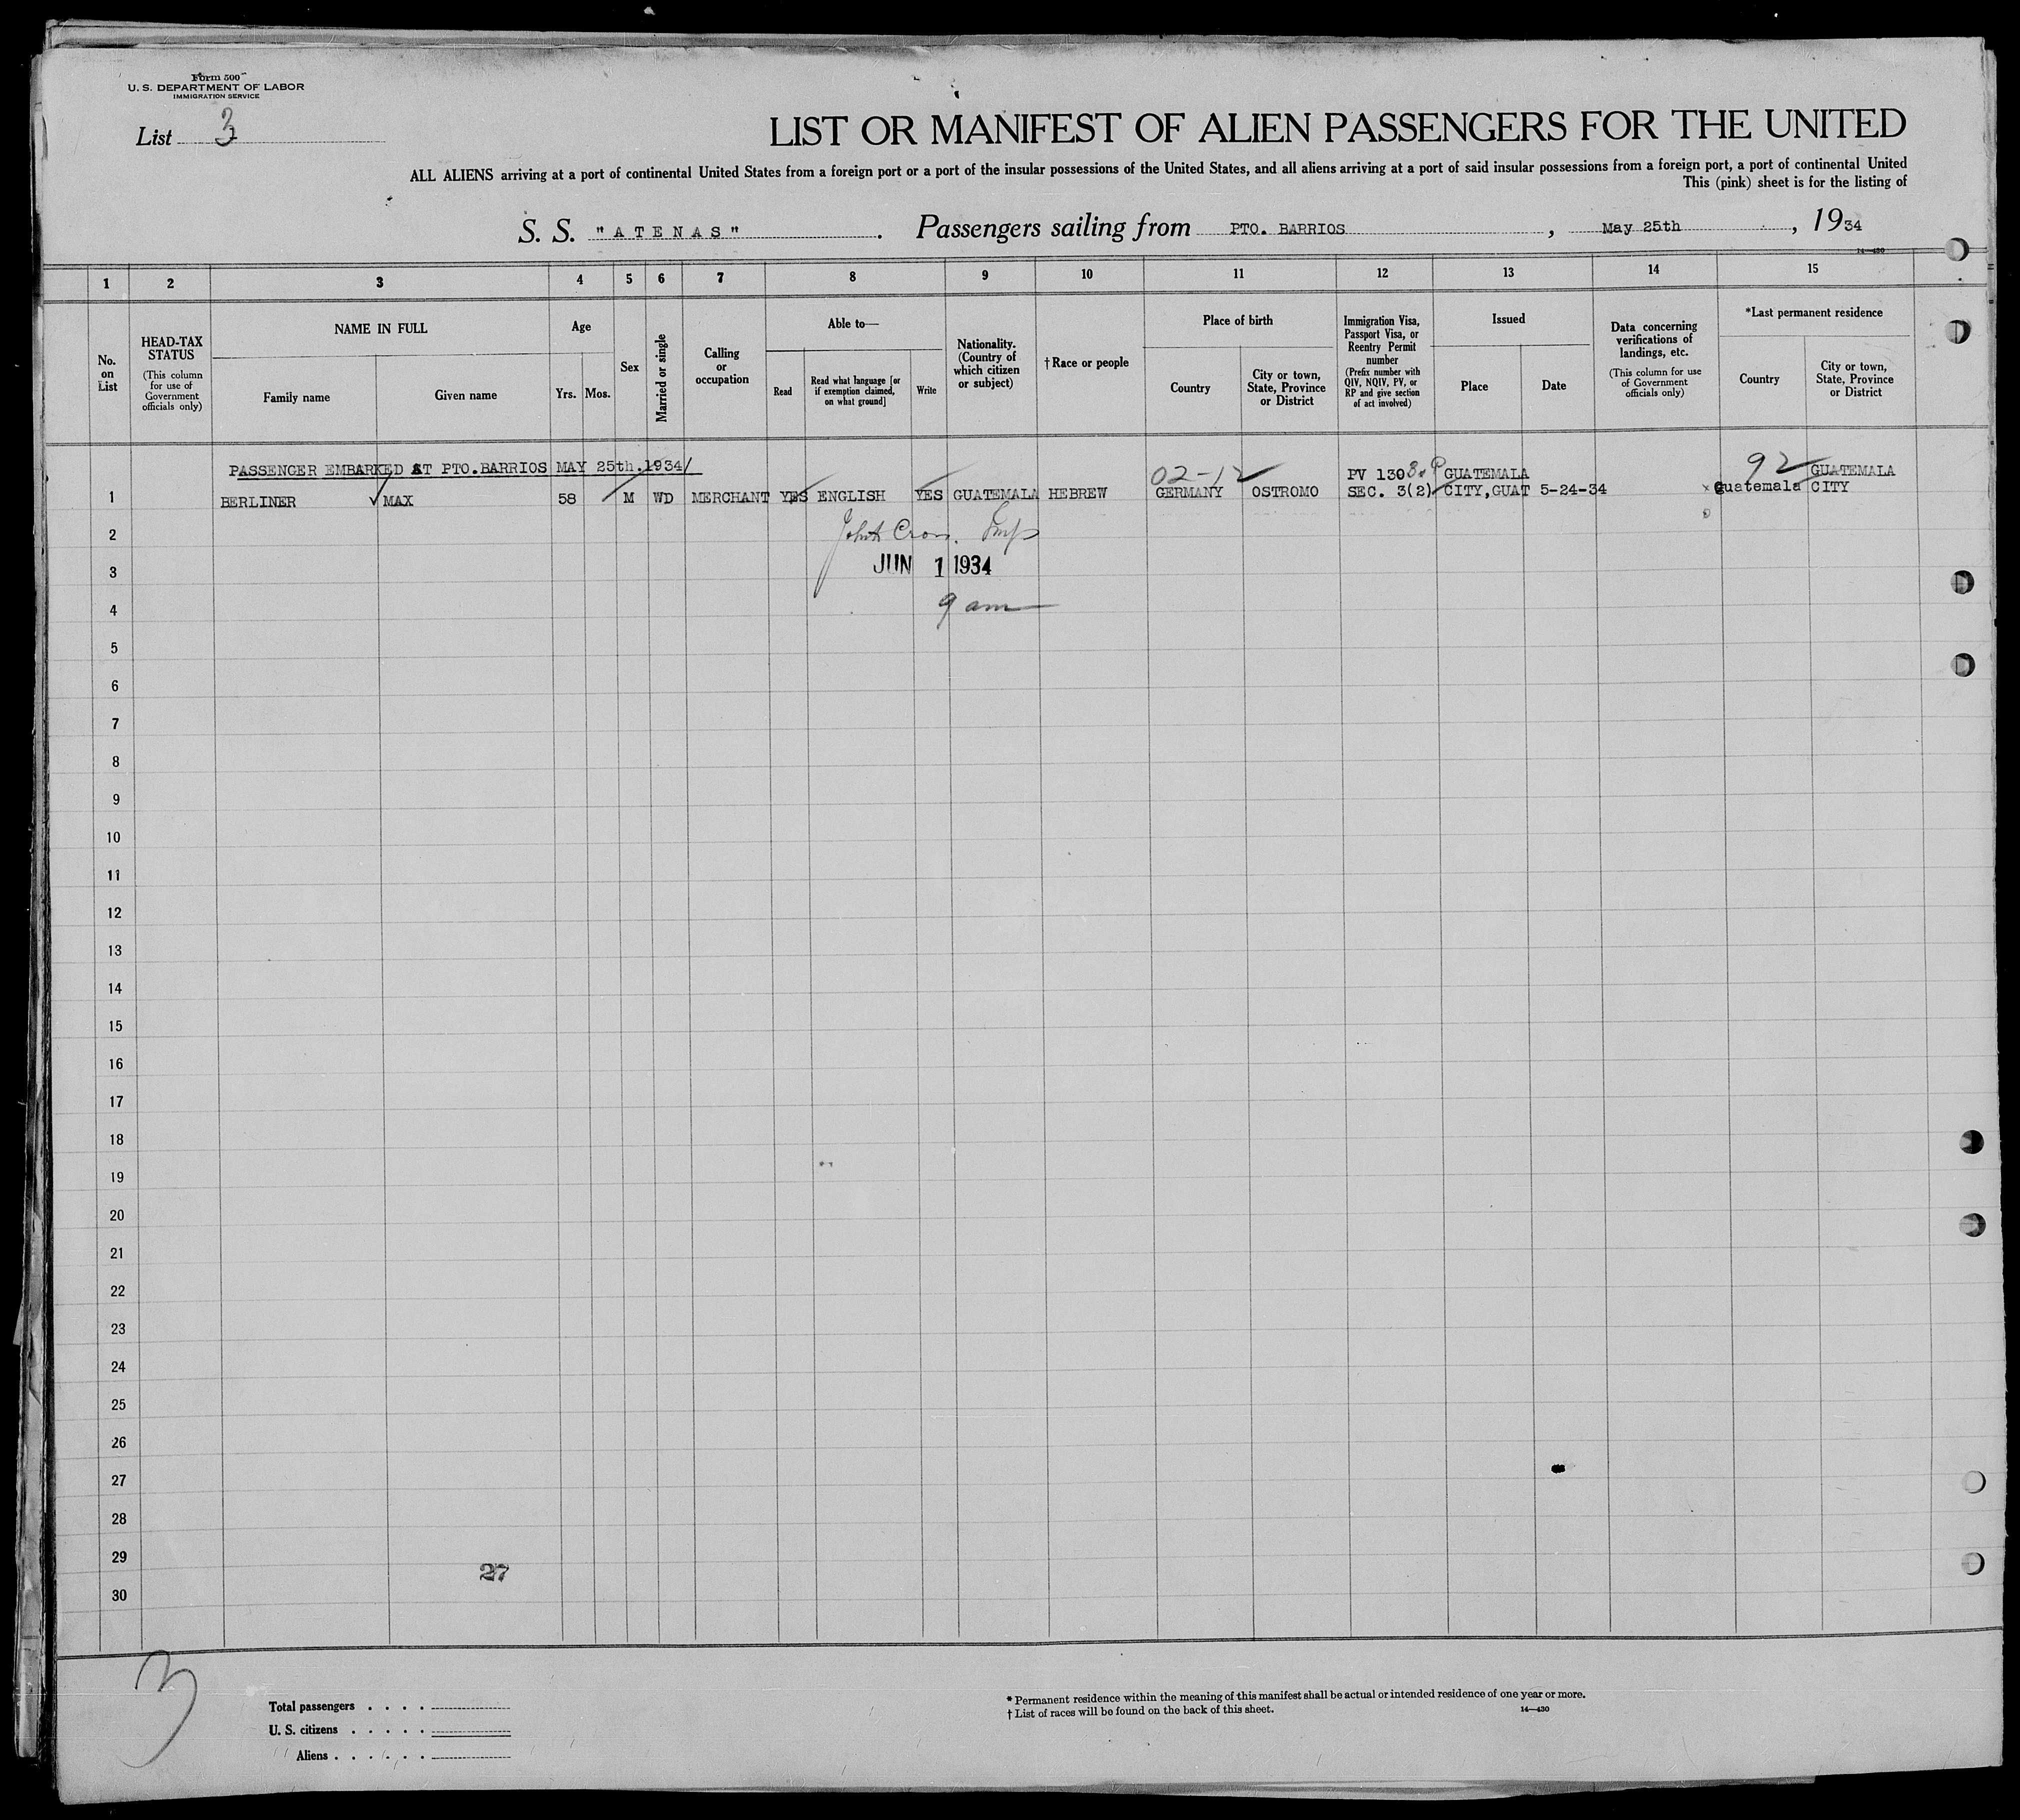 Form 500
U. S. DEPARTMENT OF LABOR
IMMIGRATION SERVICE
List 3
LIST OR MANIFEST OF ALIEN PASSENGERS FOR THE UNITED
ALL ALIENS arriving at a port of continental United States from a foreign port or a port of the insular possessions of the United States, and all aliens arriving at a port of said insular possessions from a foreign port, a port of continental United
This (pink) sheet is for the listing of
S. S. "ATENAS". Passengers sailing from PTO. BARRIOS, May 25th, 1934
14—430
1 2 3 4 5 6 7 8 9 10 11 12 13 14 15
No. on List
HEAD-TAX STATUS
(This column for use of Government officials only)
NAME IN FULL
Family name
Given name
Age
Yrs.
Mos.
Sex
Married or single
Calling or occupation
Able to—
Read
Read what language [or if exemption claimed, on what ground]
Write
Nationality. (Country of which citizen or subject)
† Race or people
Place of birth
Country
City or town, State, Province or District
Immigration Visa, Passport Visa, or Reentry Permit number
(Prefix number with QIV, NQIV, PV, or RP and give section of act involved)
Issued
Place
Date
Data concerning verifications of landings, etc.
(This column for use of Government officials only)
*Last permanent residence
Country
City or town, State, Province or District
PASSENGER EMBARKED AT PTO.BARRIOS MAY 25th.1934/
02-12
PV 130 GUATEMALA
92
GUATEMALA
1 BERLINER MAX 58 M WD MERCHANT YES ENGLISH YES GUATEMALA HEBREW GERMANY OSTROMO SEC. 3(2) CITY,GUAT 5-24-34 Guatemala CITY
2
JUN 1 1934
3
9 am
4
5
6
7
8
9
10
11
12
13
14
15
16
17
18
19
20
21
22
23
24
25
26
27
28
29
27
30
3
Total passengers . . . .
U. S. citizens . . . . .
Aliens . . . . . .
* Permanent residence within the meaning of this manifest shall be actual or intended residence of one year or more.
† List of races will be found on the back of this sheet.
14—430